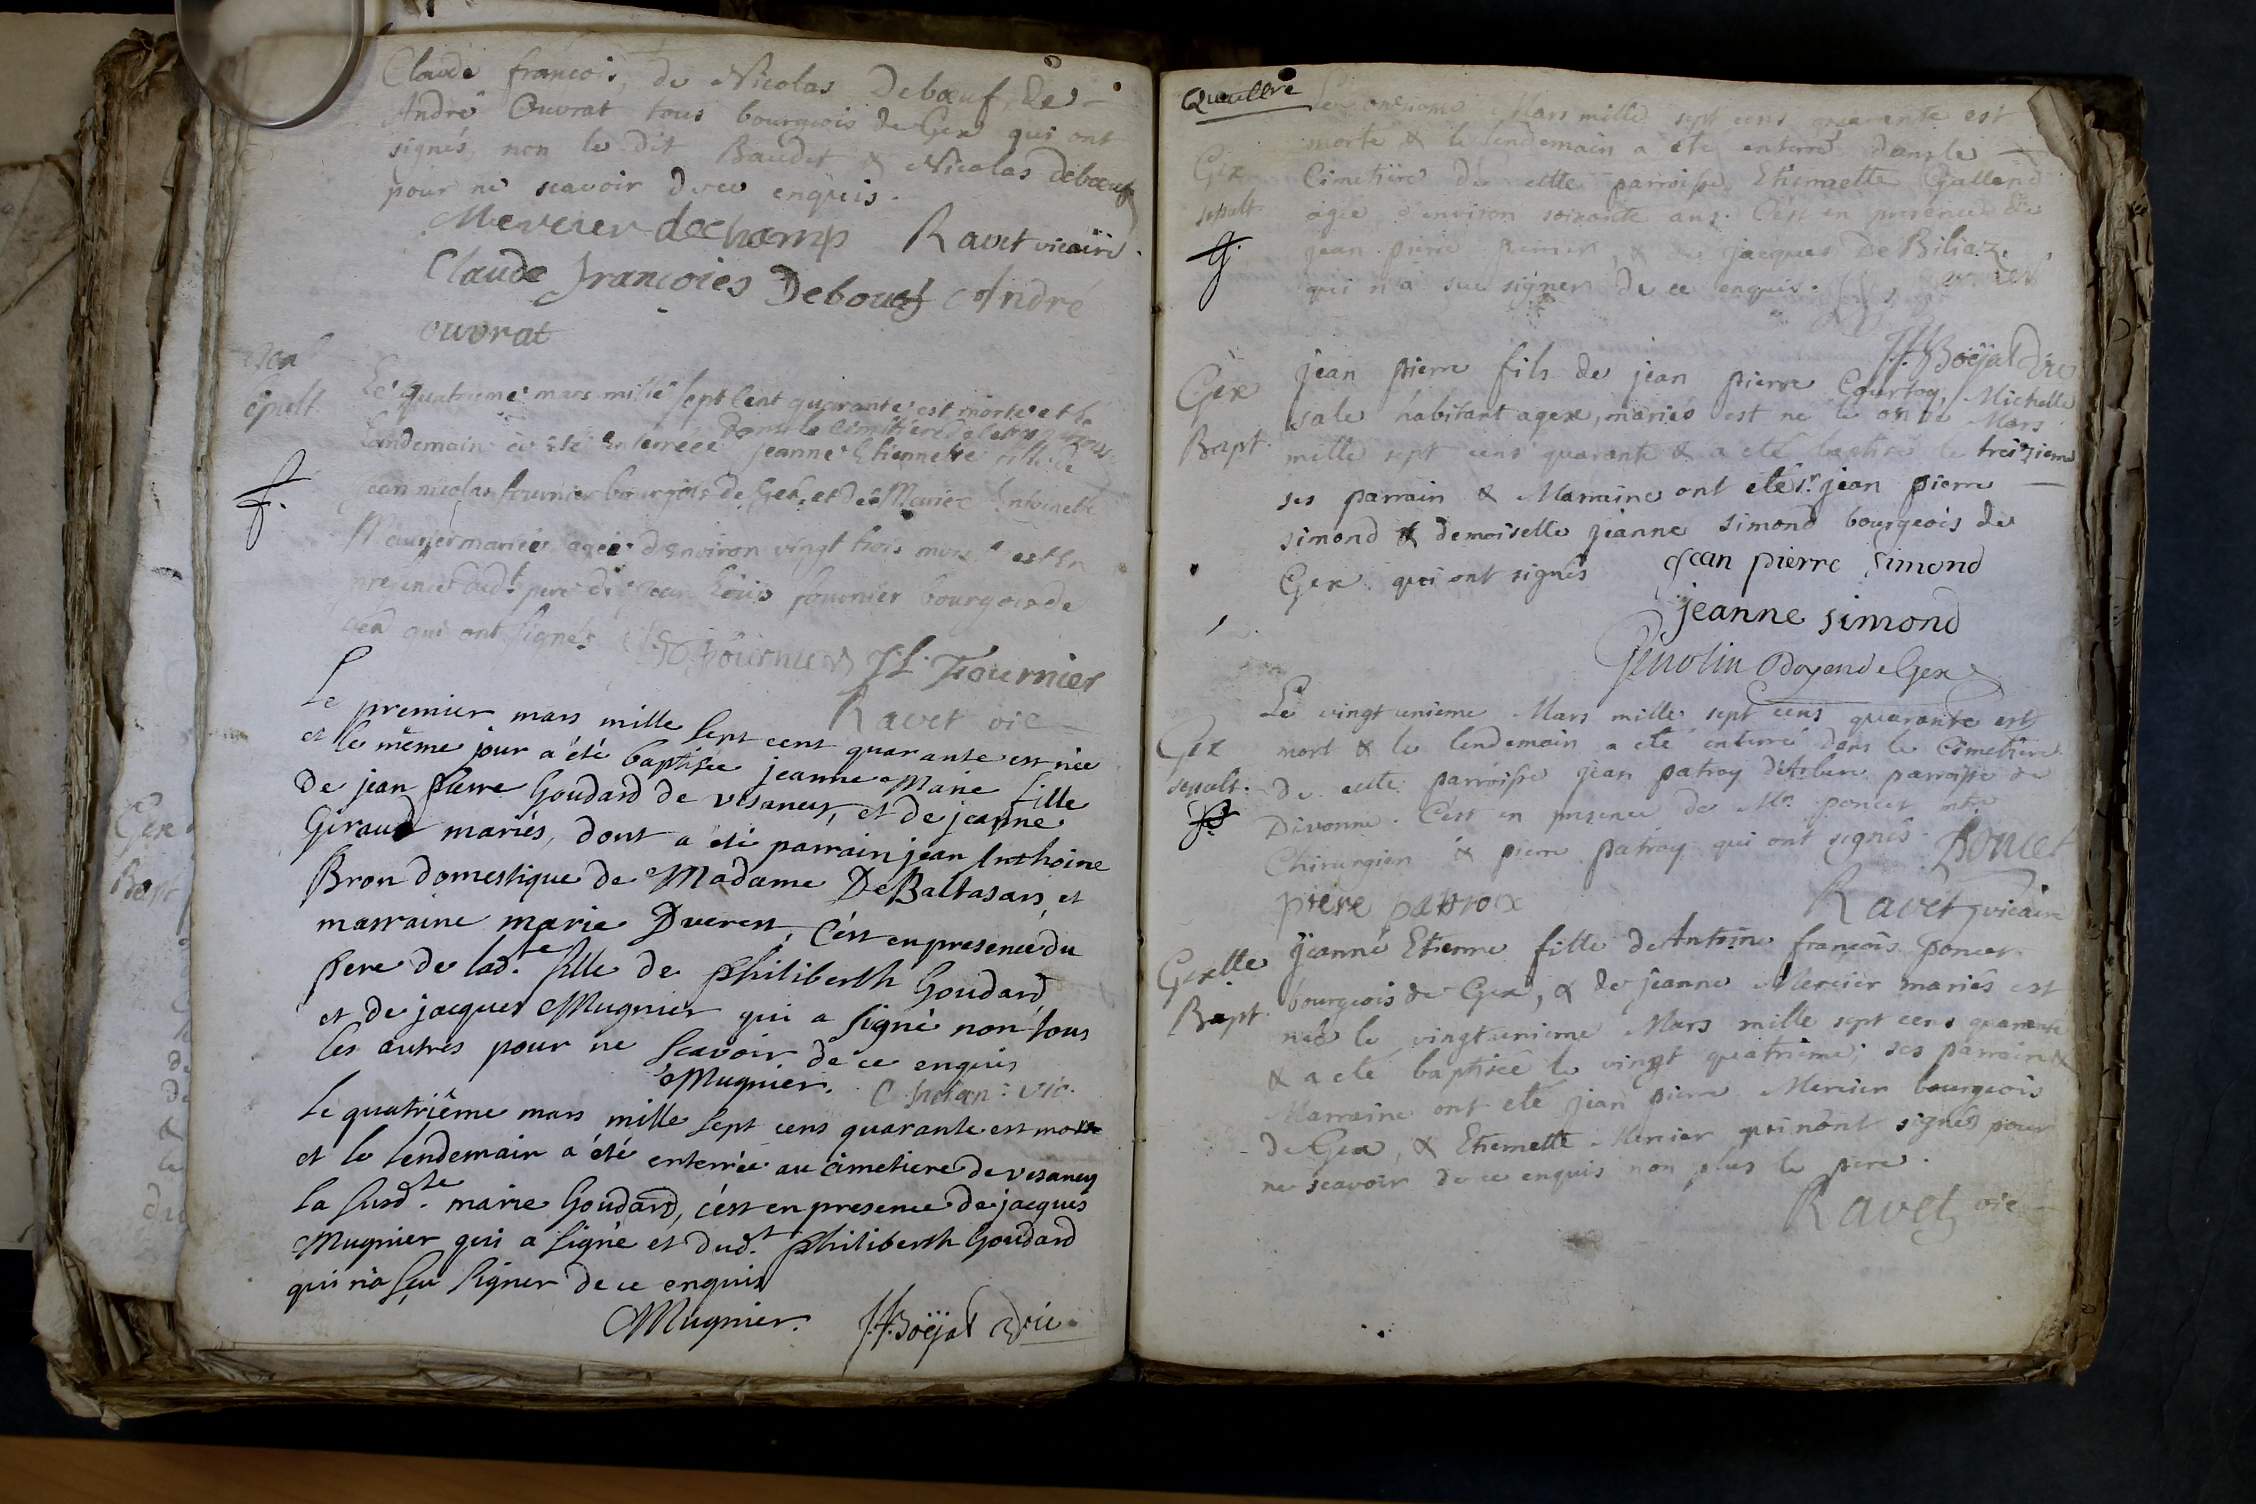 Claude francois, de Nicolas Debœuf, de
André Ouvrat tous bourgeois de Gex qui ont
signés, non le dit Baudet & Nicolas debœuf
pour ne scavoir de ce enquis.
Mercier dechamp Ravet vicaire.
Claude francoies Debouf André
ouvrat
Gex
sepult.
Le quatrieme mars mille sept cent quarante est morte et le
dans le cimitiere de
landemain a été enterréé jeanne Etiennette fille de
jean nicolas fournier bourgois de Gex, et de Mariee Entoinette
mariées agée d'environ vingt trois mois est en
presence dud.t pere de jean Louis fournier bourgois de
gex qui ont signés fournier JL Fournier
Ravet vic
Le premier mars mille sept cent quarante est née
et le même jour a été baptisée jeanne Marie fille
de jean pierre Goudard de vesancy, et de jeanne
Giraud mariés, dont a été parrain jean Anthoine
Bron domestique de Madame De Baltasars, et
marraine marie Duerest, c'est en presence du
pere de lad.te fille de philiberth Goudard
et de jacques Mugnier qui a signé non tous
les autres pour ne scavoir de ce enquis
Mugnier. vic.
Le quatriême mars mille sept cens quarante est morte
et le lendemain a été enterrée au cimetiere de vesancy
la susd.te marie Goudard, c'est en presence de jacques
Mugnier qui a signé et dud.t philiberth Goudard
qui n'a sçu signer de ce enquis
Mugnier. JfBoëjat Vic.
Gex
Bapt
Le onzieme Mars mille sept cens quarante est
morte & le lendemain a eté enterré dans le
Gex
sepult.
Cimetiere de cette parroisse Etiennette Galland
agée d'environ soixante ans. C'est en presence de
jean pierre & de jacques De Biliaz
qui n'a sçu signer de ce enquis.
JfBoëjat Vic
Gex
Bapt.
jean pierre fils de jean pierre Courtoy, Michelle
sale habitant a gex, mariés est ne le onze Mars
mille sept cens quarante & a eté baptisé le treizieme
ses parrain & Marraine ont eté sr. jean pierre
simond & demoiselle jeanne simond bourgeois de
Gex qui ont signés Jean pierre Simond
jeanne simond
Doyen de Gex
Gex
sepult.
Le vingt unieme Mars mille sept cens quarante est
mort & le lendemain a eté enterré dans le Cimetiere
de cette parroisse jean patroy parroisse de
Divonne. C'est en presence de Mr. poncet mtre
Chirurgien & pierre patroy qui ont signés. Poncet
piere patrox Ravet vicaire
Gex
Bapt.
jeanne Etienne fille de Antoine françois poncet
bourgeois de Gex, & de jeanne Mercier mariés est
neé le vingt unieme Mars mille sept cens quarante
& a eté baptiseé le vingt quatrieme; ses parrain &
Marraine ont eté jean pierre Mercier bourgeois
de Gex, & Etiennette Mercier qui n'ont signés pour
ne scavoir de ce enquis non plus le pere.
Ravet vic